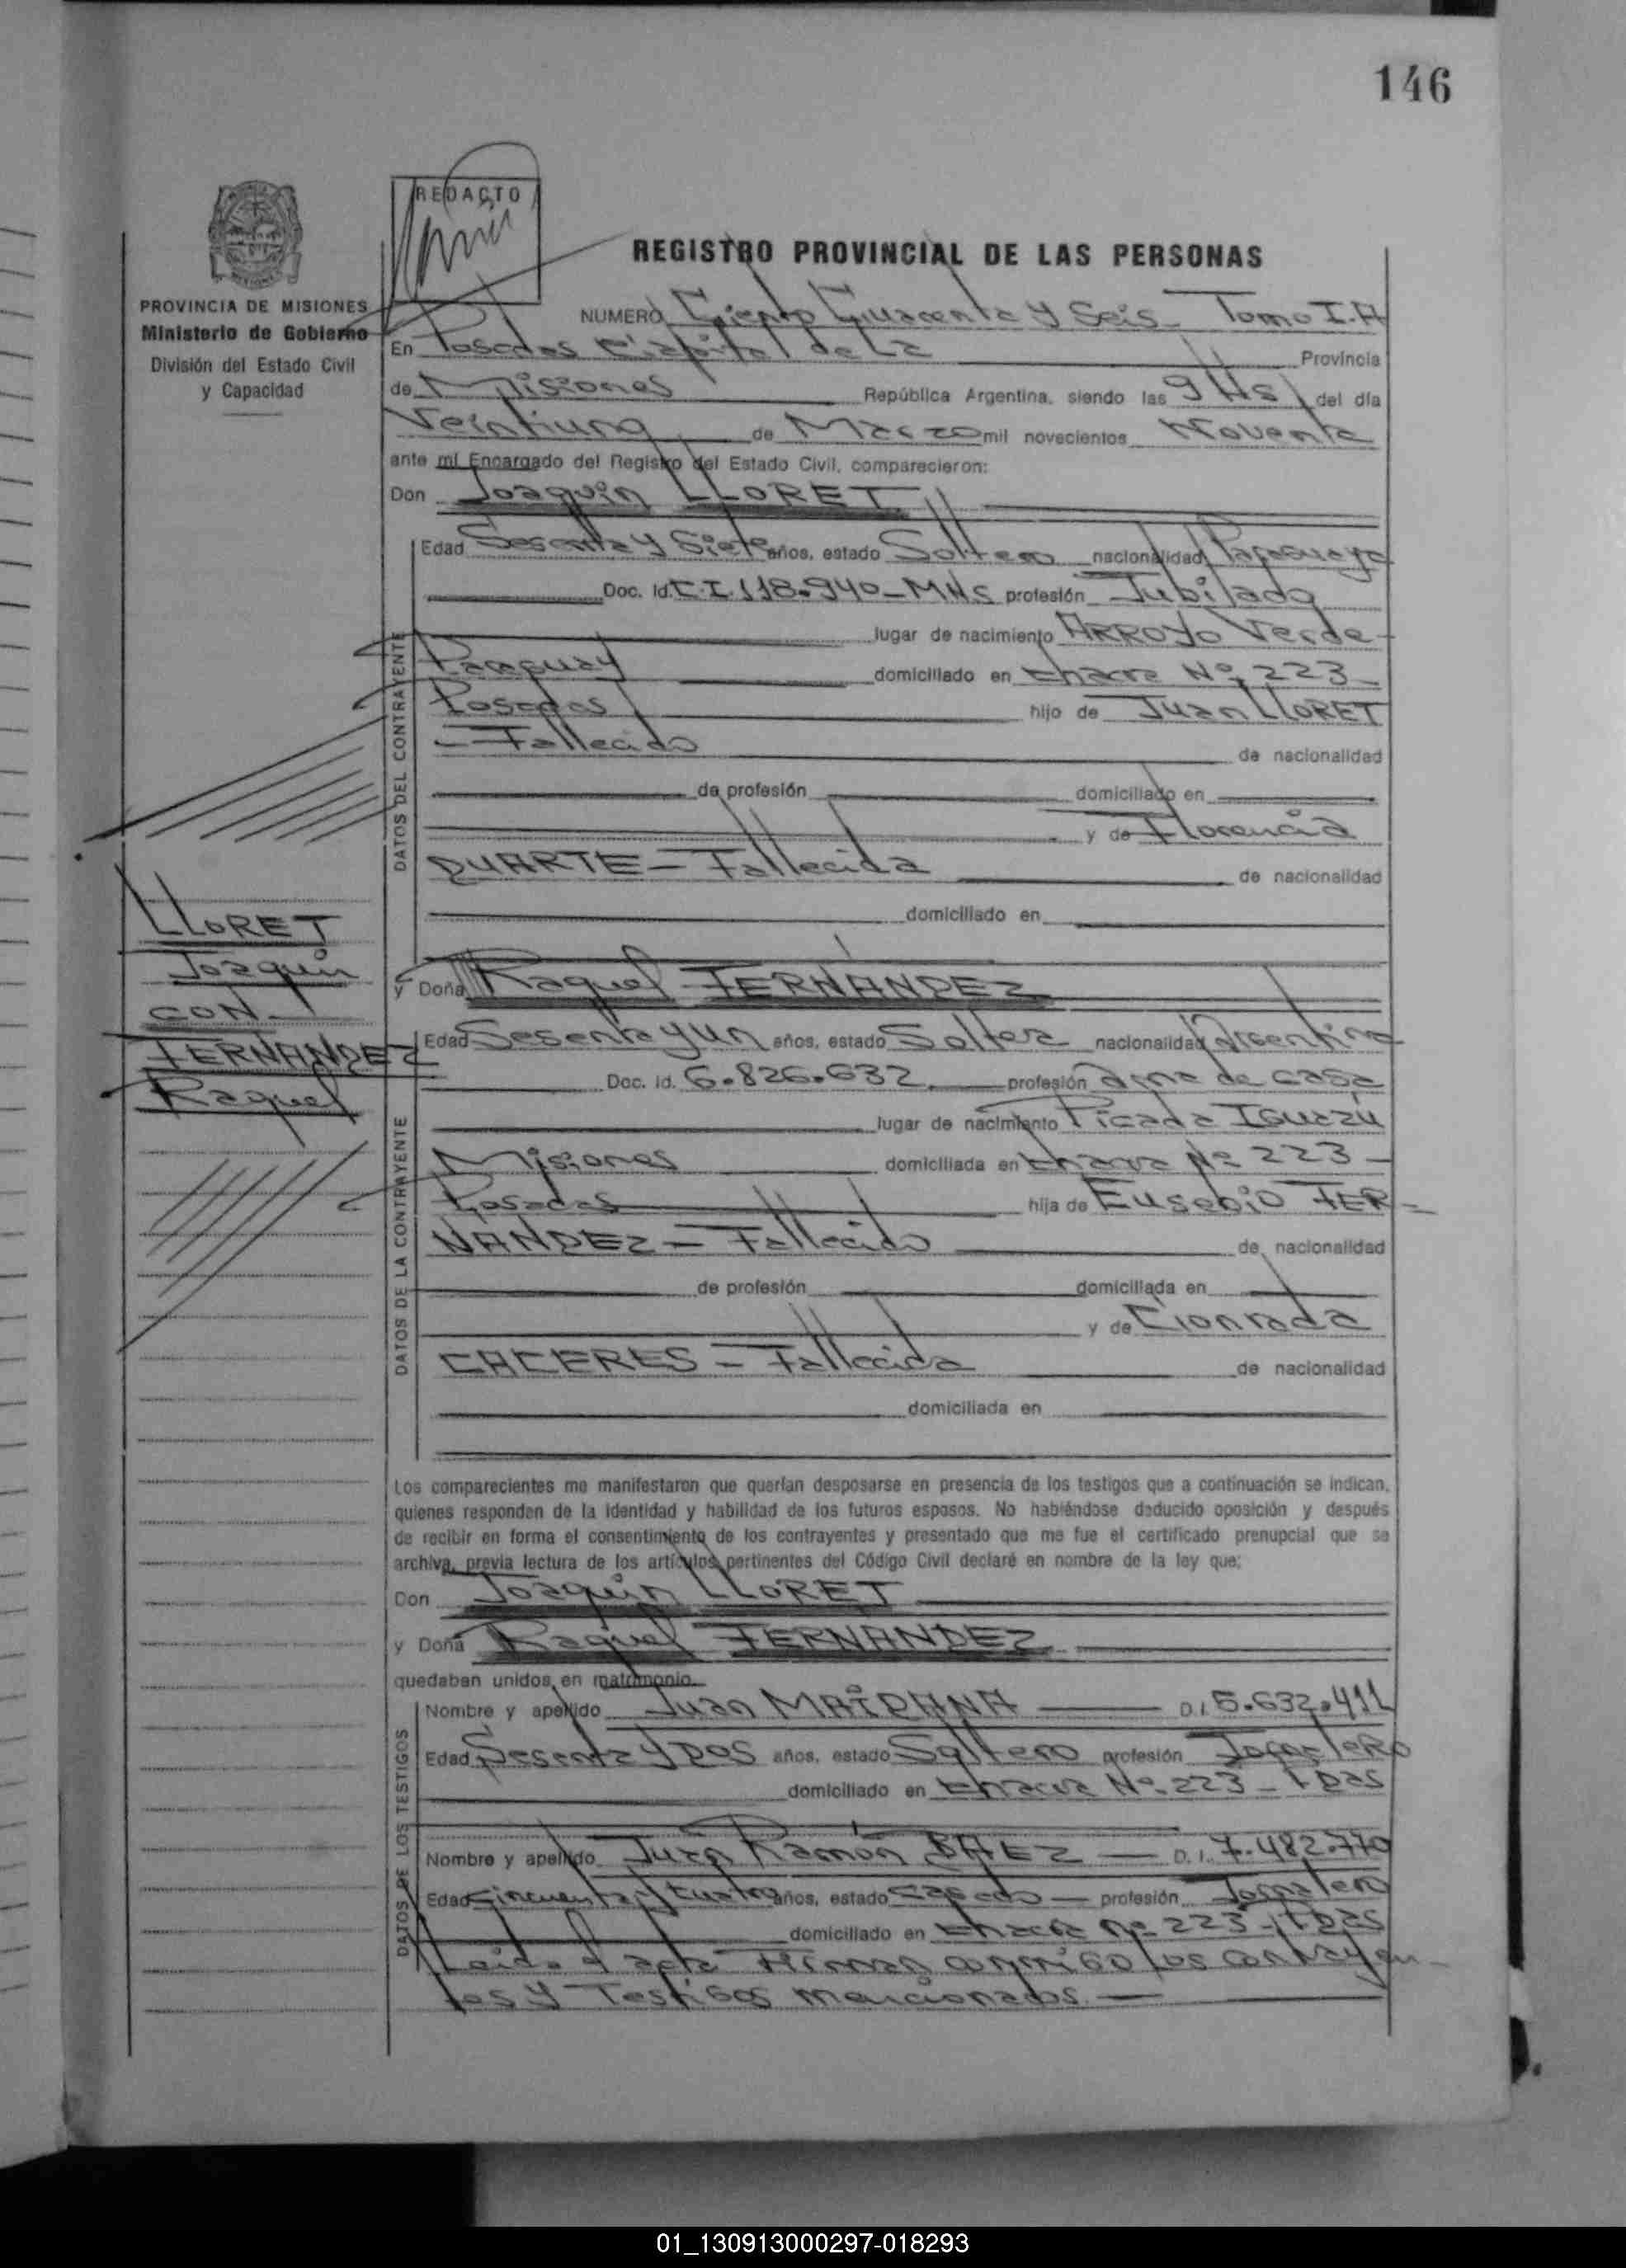 146
REDACTO
REGISTRO PROVINCIAL DE LAS PERSONAS
PROVINCIA DE MISIONES
Ministerio de Gobierno
División del Estado Civil
y Capacidad
NUMERO Ciento Cuarenta y Seis - Tomo I.A
En Posadas Capital de La Provincia
de Misiones República Argentina, siendo las 9 Hs del día
Veintiuno de Marzo mil novecientos Noventa
ante mí Encargado del Registro del Estado Civil, comparecieron:
Don Joaquin LLORET
DATOS DEL CONTRAYENTE
Edad Sesenta y Siete años, estado Soltero nacionalidad Paraguaya
Doc. Id. C.I. 118.940 - MNS profesión Jubilado
lugar de nacimiento ARROYO Verde -
Paraguay domiciliado en Chacra Nº 223 -
Posadas hijo de Juan LLORET
- Fallecido de nacionalidad
de profesión domiciliado en
y de Florencia
DUARTE - Fallecida de nacionalidad
domiciliado en
LLORET
Joaquin
CON
FERNANDEZ
Raquel
y Doña Raquel FERNANDEZ
DATOS DE LA CONTRAYENTE
Edad Sesenta y un años, estado Soltera nacionalidad Argentina
Doc. Id. 6.826.632 profesión ama de casa
lugar de nacimiento Picada Iguazú
Misiones domiciliada en Chacra Nº 223 -
Posadas hija de Eusebio FER=
NANDEZ - Fallecido de nacionalidad
de profesión domiciliada en
y de Conrada
CACERES - Fallecida de nacionalidad
domiciliada en
Los comparecientes me manifestaron que querían desposarse en presencia de los testigos que a continuación se indican,
quienes responden de la identidad y habilidad de los futuros esposos. No habiéndose deducido oposición y después
de recibir en forma el consentimiento de los contrayentes y presentado que me fue el certificado prenupcial que se
archiva, previa lectura de los artículos pertinentes del Código Civil declaré en nombre de la ley que:
Don Joaquin LLORET
y Doña Raquel FERNANDEZ
quedaban unidos en matrimonio.
DATOS DE LOS TESTIGOS
Nombre y apellido Juan MAIDANA D.I. 5.632.411
Edad Sesenta y DOS años, estado Soltero profesión Jornalero
domiciliado en Chacra Nº 223 - Pdas
Nombre y apellido Juan Ramón BAEZ - D.I. 7.482.770
Edad Cincuenta y Cuatro años, estado Casado - profesión Jornalero
domiciliado en Chacra Nº 223 - Pdas
Leida el acta Firman conmigo los contrayen-
tes y Testigos mencionados. -
01_130913000297-018293